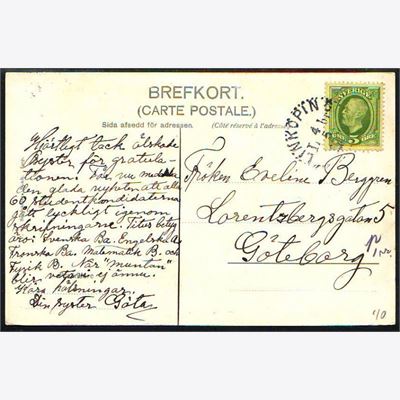 BREFKORT.
(CARTE POSTALE.)
Sida afsedd för adressen. (Côté réservé à l'adres
SVERIGE
5 ÖRE
LINKÖPING
Hjärtligt tack älskade
Syster för gratula-
tionen! Får nu meddela
den glada nyheten att alla
60 studentkandidaterna
gått lyckligt igenom
skrifningarne. Titus betyg
äro: Svenska Ba. Engelska A
Franska Ba. Matematik B. och
Fysik B. När "muntan"
blir veta vi ej ännu.
Kära hälsningar.
Din syster Göta
Fröken Eveline Berggren
Lorentzbergsgatan 5
Göteborg